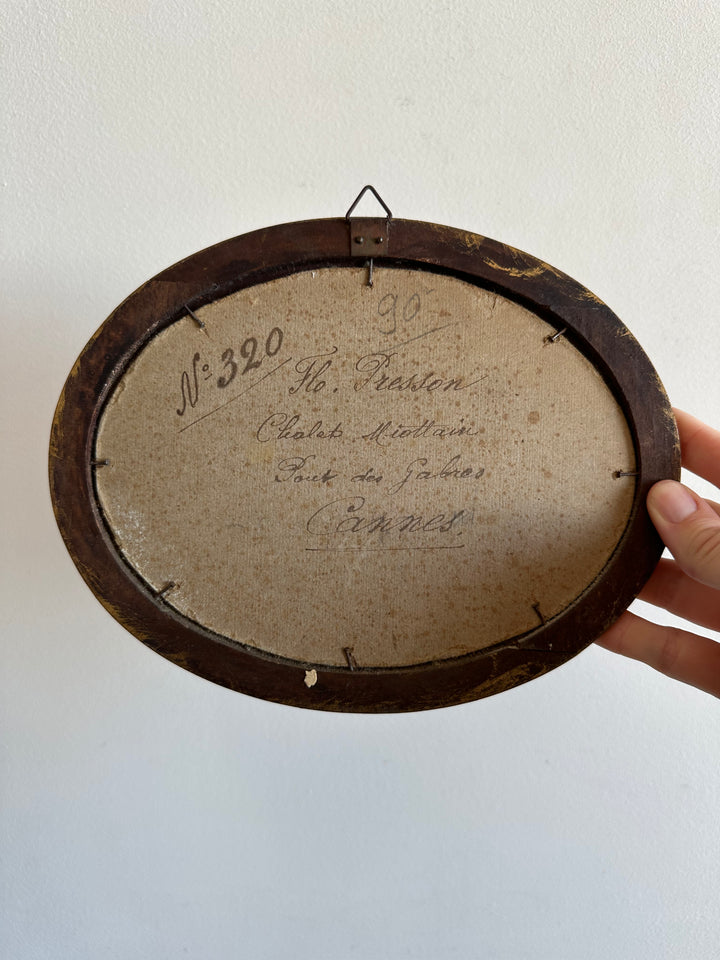 90
Nº 320
Flo. Presson
Chalet Miottain
Pont des Gabres
Cannes.